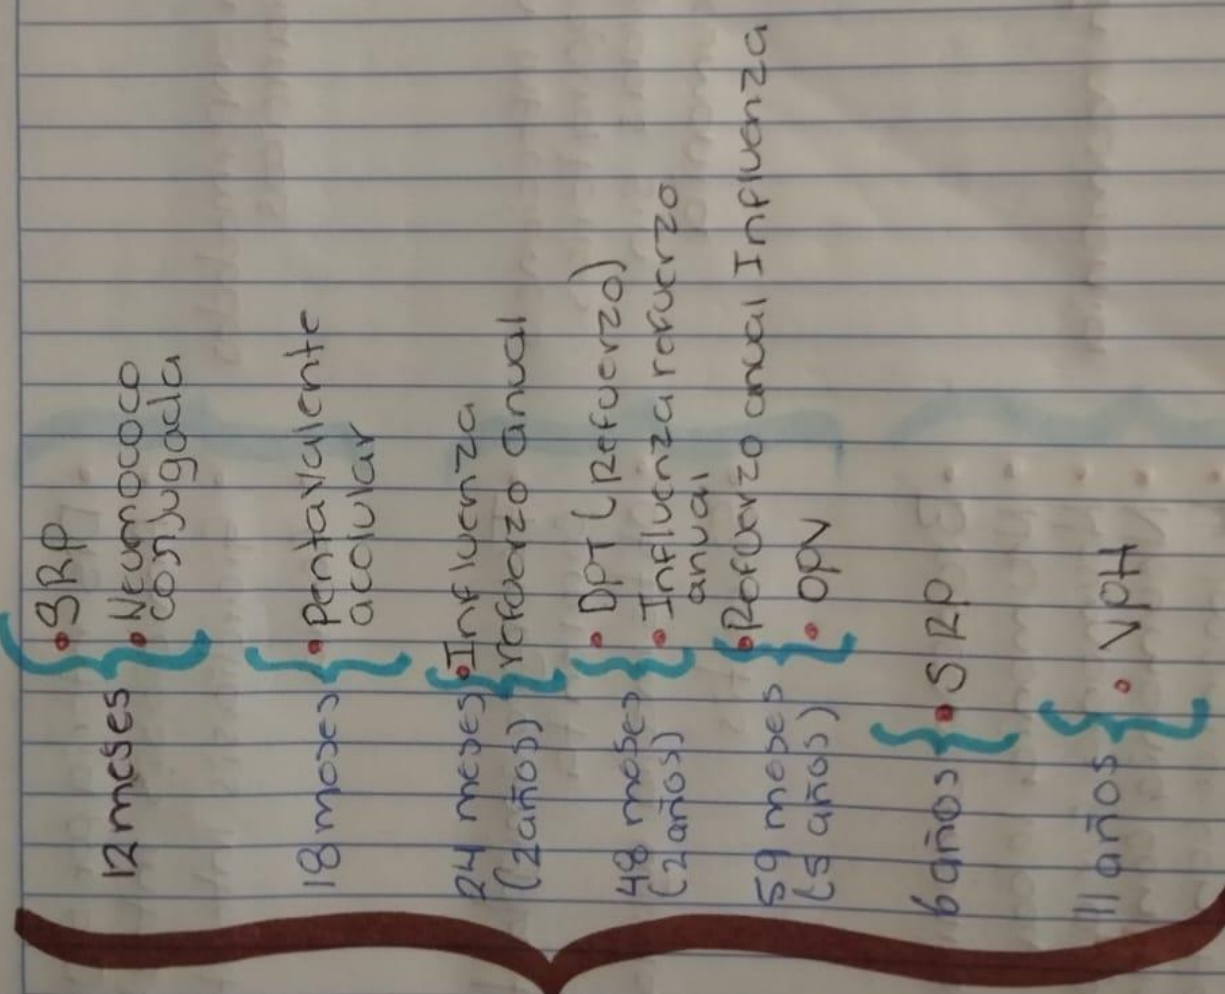 12 meses
• SRP
• Neumococo
conjugada
18 meses
• Pentavalente
acelular
24 meses
(2 años)
• Influenza
refuerzo anual
48 meses
(2 años)
• DPT (Refuerzo)
• Influenza refuerzo
anual
59 meses
(5 años)
• Refuerzo anual Influenza
• OPV
6 años
• SRP
11 años
• VPH